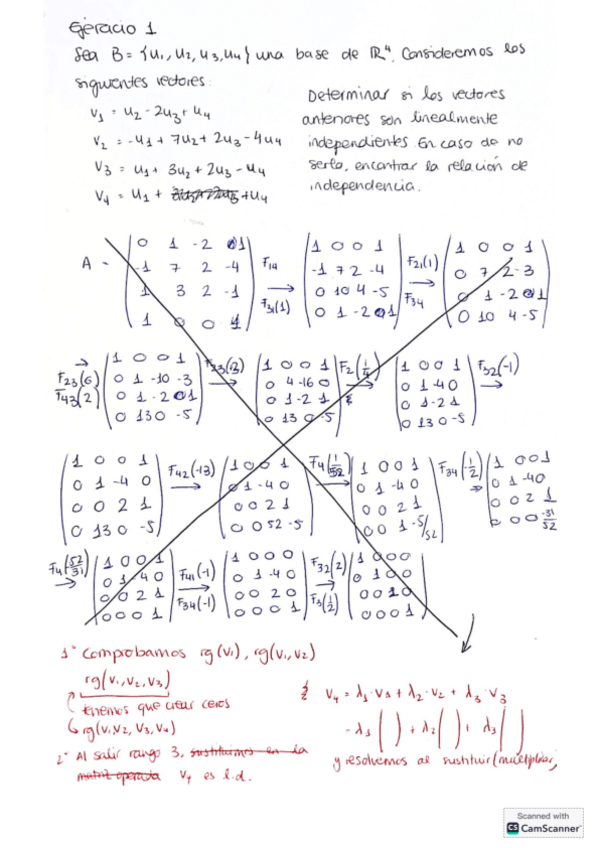 Ejercicio 1
Sea B = {u1, u2, u3, u4} una base de R^4. Consideremos los
siguientes vectores:
v1 = u2 - 2u3 + u4
v2 = -u1 + 7u2 + 2u3 - 4u4
v3 = u1 + 3u2 + 2u3 - u4
v4 = u1 + u4
Determinar si los vectores
anteriores son linealmente
independientes. En caso de no
serlo, encontrar la relación de
independencia.
A
0 1 -2 1
-1 7 2 -4
1 3 2 -1
1 0 0 1
F14
F31(1)
1 0 0 1
-1 7 2 -4
0 10 4 -5
0 1 -2 1
F21(1)
F34
1 0 0 1
0 7 2 -3
0 1 -2 1
0 10 4 -5
F23(6)
F43(2)
1 0 0 1
0 1 -10 -3
0 1 -2 1
0 13 0 -5
F23(3)
1 0 0 1
0 4 -16 0
0 1 -2 1
0 13 0 -5
F2(1/4)
1 0 0 1
0 1 -4 0
0 1 -2 1
0 13 0 -5
F32(-1)
1 0 0 1
0 1 -4 0
0 0 2 1
0 13 0 -5
F42(-13)
1 0 0 1
0 1 -4 0
0 0 2 1
0 0 52 -5
F4(1/52)
1 0 0 1
0 1 -4 0
0 0 2 1
0 0 1 -5/52
F34(-1/2)
1 0 0 1
0 1 -4 0
0 0 2 1
0 0 0 -31/52
F4(52/31)
1 0 0 1
0 1 -4 0
0 0 2 1
0 0 0 1
F41(-1)
F34(-1)
1 0 0 0
0 1 -4 0
0 0 2 0
0 0 0 1
F32(2)
F3(1/2)
1 0 0 0
0 1 0 0
0 0 1 0
0 0 0 1
1º Comprobamos rg(v1), rg(v1, v2)
rg(v1, v2, v3)
tenemos que crear ceros
rg(v1, v2, v3, v4)
2º Al salir rango 3, sustituimos en la
matriz operada v4 es l.d.
v4 = λ1·v1 + λ2·v2 + λ3·v3
= λ1 ( ) + λ2 ( ) + λ3 ( )
y resolvemos al sustituir/multiplicar,
Scanned with
CS CamScanner